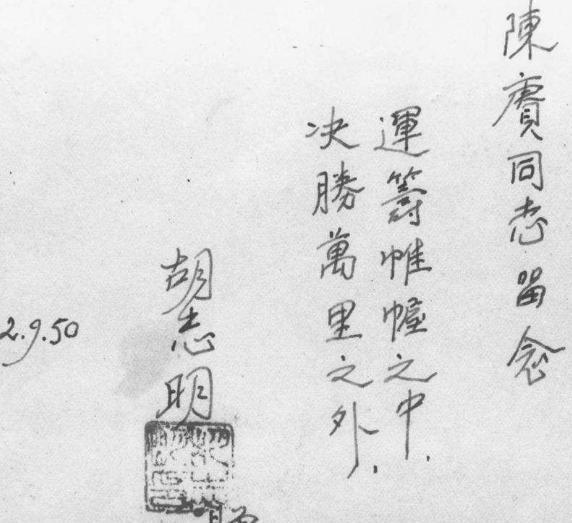 陳賡同志留念
運籌帷幄之中.
决勝萬里之外.
胡志明
2.9.50